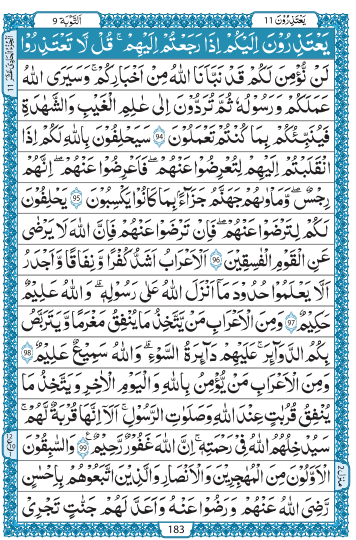 يَعْتَذِرُونَ 11 اَلتَّوْبَة 9
يَعْتَذِرُوْنَ اِلَيْكُمْ اِذَا رَجَعْتُمْ اِلَيْهِمْ ؕ قُلْ لَّا تَعْتَذِرُوْا
لَنْ نُّؤْمِنَ لَكُمْ قَدْ نَبَّاَنَا اللّٰهُ مِنْ اَخْبَارِكُمْ ؕ وَسَيَرَى اللّٰهُ
عَمَلَكُمْ وَرَسُوْلُهٗ ثُمَّ تُرَدُّوْنَ اِلٰى عٰلِمِ الْغَيْبِ وَالشَّهَادَةِ
فَيُنَبِّئُكُمْ بِمَا كُنْتُمْ تَعْمَلُوْنَ 94 سَيَحْلِفُوْنَ بِاللّٰهِ لَكُمْ اِذَا
انْقَلَبْتُمْ اِلَيْهِمْ لِتُعْرِضُوْا عَنْهُمْ ؕ فَاَعْرِضُوْا عَنْهُمْ ؕ اِنَّهُمْ
رِجْسٌ ؗ وَّمَاْوٰىهُمْ جَهَنَّمُ جَزَآءًۢ بِمَا كَانُوْا يَكْسِبُوْنَ 95 يَحْلِفُوْنَ
لَكُمْ لِتَرْضَوْا عَنْهُمْ ۚ فَاِنْ تَرْضَوْا عَنْهُمْ فَاِنَّ اللّٰهَ لَا يَرْضٰى
عَنِ الْقَوْمِ الْفٰسِقِيْنَ 96 اَلْاَعْرَابُ اَشَدُّ كُفْرًا وَّنِفَاقًا وَّاَجْدَرُ
اَلَّا يَعْلَمُوْا حُدُوْدَ مَاۤ اَنْزَلَ اللّٰهُ عَلٰى رَسُوْلِهٖ ؕ وَاللّٰهُ عَلِيْمٌ
حَكِيْمٌ 97 وَمِنَ الْاَعْرَابِ مَنْ يَّتَّخِذُ مَا يُنْفِقُ مَغْرَمًا وَّيَتَرَبَّصُ
بِكُمُ الدَّوَآئِرَ ؕ عَلَيْهِمْ دَآئِرَةُ السَّوْءِ ؕ وَاللّٰهُ سَمِيْعٌ عَلِيْمٌ 98
وَمِنَ الْاَعْرَابِ مَنْ يُّؤْمِنُ بِاللّٰهِ وَالْيَوْمِ الْاٰخِرِ وَيَتَّخِذُ مَا
يُنْفِقُ قُرُبٰتٍ عِنْدَ اللّٰهِ وَصَلَوٰتِ الرَّسُوْلِ ؕ اَلَاۤ اِنَّهَا قُرْبَةٌ لَّهُمْ ؕ
سَيُدْخِلُهُمُ اللّٰهُ فِيْ رَحْمَتِهٖ ؕ اِنَّ اللّٰهَ غَفُوْرٌ رَّحِيْمٌ 99 وَالسّٰبِقُوْنَ
الْاَوَّلُوْنَ مِنَ الْمُهٰجِرِيْنَ وَالْاَنْصَارِ وَالَّذِيْنَ اتَّبَعُوْهُمْ بِاِحْسَانٍ
رَّضِيَ اللّٰهُ عَنْهُمْ وَرَضُوْا عَنْهُ وَاَعَدَّ لَهُمْ جَنّٰتٍ تَجْرِيْ
183